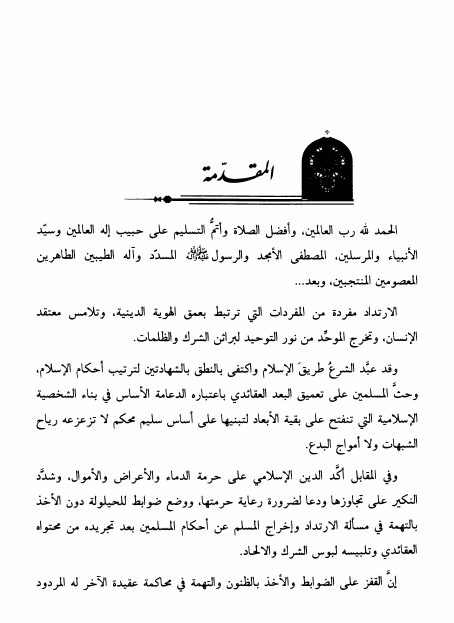 المقدّمة
الحمد لله رب العالمين، وأفضل الصلاة وأتمُّ التسليم على حبيب إله العالمين وسيّد
الأنبياء والمرسلين، المصطفى الأمجد والرسول ﷺ المسدّد وآله الطيبين الطاهرين
المعصومين المنتجبين، وبعد...
الارتداد مفردة من المفردات التي ترتبط بعمق الهوية الدينية، وتلامس معتقد
الإنسان، وتخرج الموحِّد من نور التوحيد لبراثن الشرك والظلمات.
وقد عبَّد الشرعُ طريقَ الإسلام واكتفى بالنطق بالشهادتين لترتيب أحكام الإسلام،
وحثَّ المسلمين على تعميق البعد العقائدي باعتباره الدعامة الأساس في بناء الشخصية
الإسلامية التي تنفتح على بقية الأبعاد لتبنيها على أساس سليم محكم لا تزعزعه رياح
الشبهات ولا أمواج البدع.
وفي المقابل أكَّد الدين الإسلامي على حرمة الدماء والأعراض والأموال، وشدَّد
النكير على تجاوزها ودعا لضرورة رعاية حرمتها، ووضع ضوابط للحيلولة دون الأخذ
بالتهمة في مسألة الارتداد وإخراج المسلم عن أحكام المسلمين بعد تجريده من محتواه
العقائدي وتلبيسه لبوس الشرك والالحاد.
إنَّ القفز على الضوابط والأخذ بالظنون والتهمة في محاكمة عقيدة الآخر له المردود